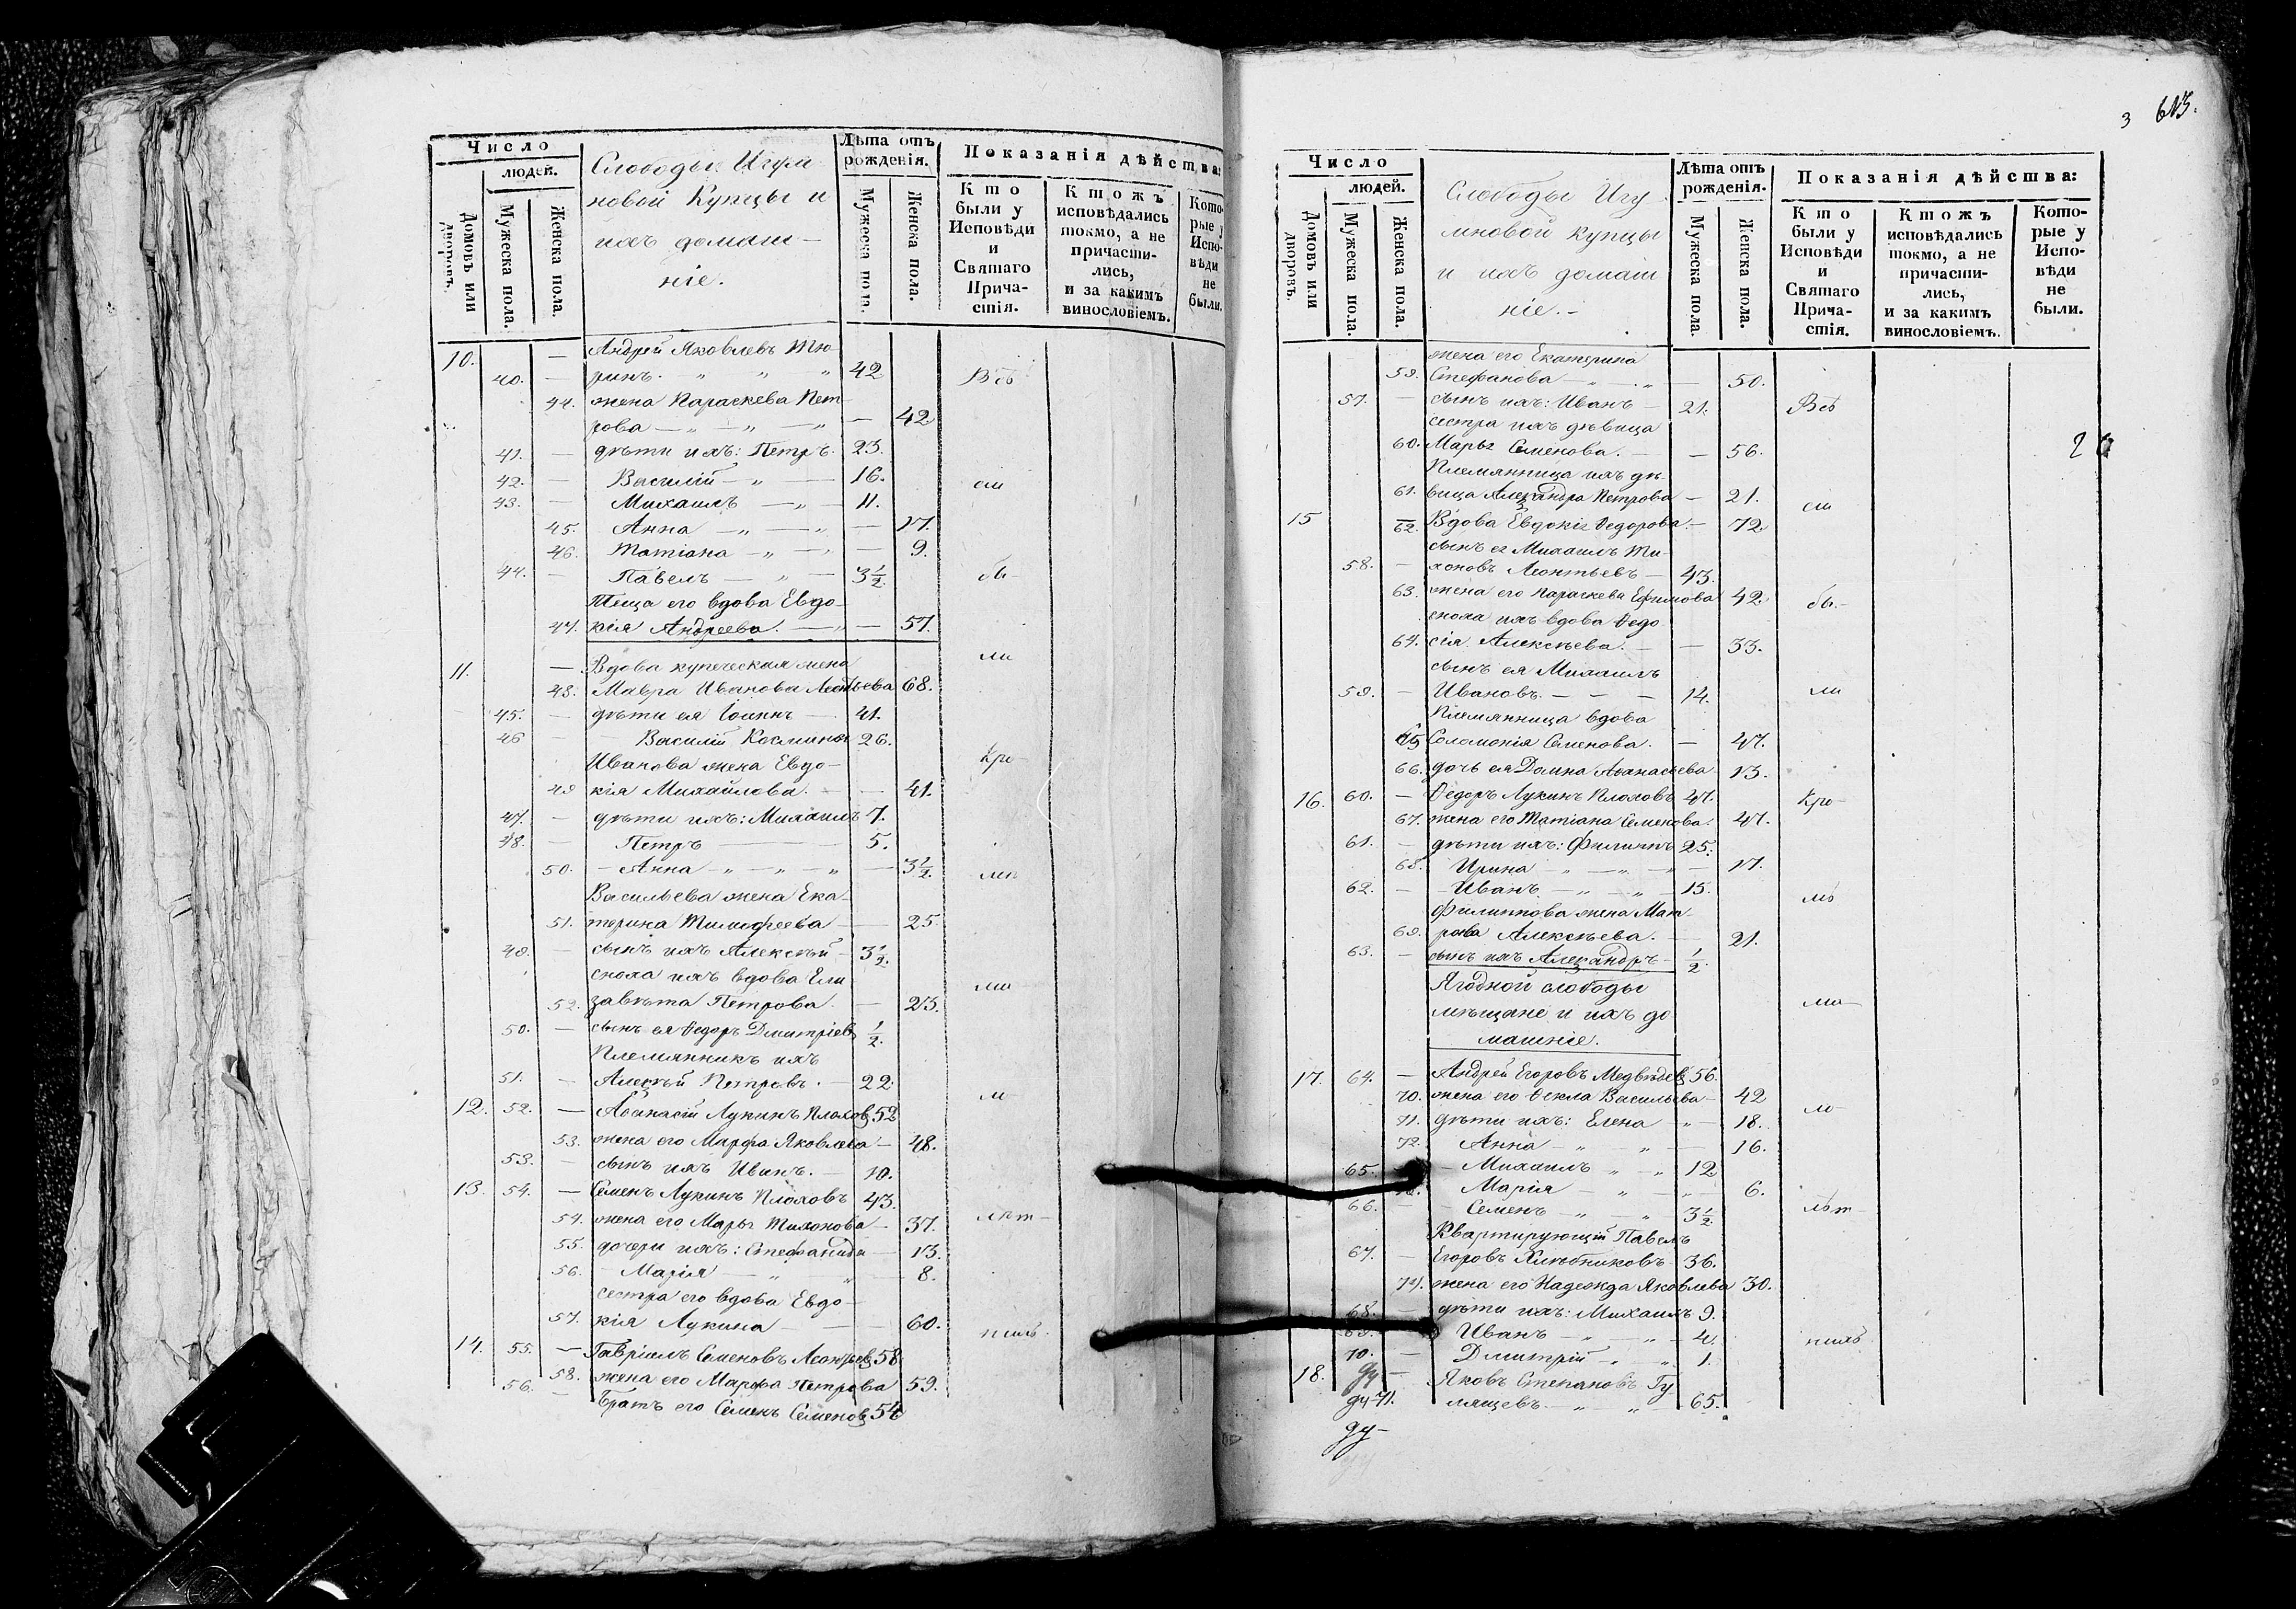 Число
людей.
Домовъ или дворовъ.
Мужеска пола.
Женска пола.
Слободы Игум
новой Купцы и
ихъ домаш-
ніе.
Лѣта отъ рожденія.
Мужеска пола.
Женска пола.
Показанія дѣйства:
Кто были у Исповѣди и Святаго Причастія.
Ктожъ исповѣдались токмо, а не причасти-лись, и за какимъ винословіемъ.
Кото-рые у Испо-вѣди не были.
10. — Андрей Яковлевъ Тю-
40. — ринъ. 42
44. жена Параскева Пет
рова — — 42
41. — дѣти ихъ: Петръ. 23.
42. — Василій — 16.
43. — Михаилъ — 11.
45. Анна — — 17.
46. Татіана — — 9.
44. — Павелъ — 3½
Теща его вдова Евдо-
47. кія Андреева. — — 57.
11. — Вдова купеческая жена
48. Мавра Иванова Леонтьева 68.
45. — дѣти ея Іоаннъ — 41.
46 — Василій Космины 26.
Иванова жена Евдо-
49 кія Михайлова. — — 41.
47. — дѣти ихъ: Михаилъ 7.
48. — Петръ — 5.
50. — Анна — — 3½.
Васильева жена Ека-
51. терина Тимофеева — — 25.
49. — сынъ ихъ Алексѣй — 3½.
сноха ихъ вдова Ели
52. завѣта Петрова. — 23.
50. — сынъ ея Ѳедоръ Дмитріевъ ½.
Племянникъ ихъ
51. — Алексѣй Петровъ. — 22.
12. 52. — Аѳанасій Лукинъ Плаховъ 52
53. жена его Марфа Яковлева — 48.
53. — сынъ ихъ Иванъ. — 10.
13. 54. — Семенъ Лукинъ Плоховъ 43.
54. жена его Марья Тихонова — 37.
55. дочери ихъ: Стефанида — 13.
56. Марія — — 8.
сестра его вдова Евдо-
57. кія Лукина — — 60.
14. 55. — Гавріилъ Семеновъ Леонтьевъ 58.
58. жена его Марфа Петрова 59.
56. — Братъ его Семенъ Семеновъ 54
Всѣ
сіи
бы-
ли
Кро-
мѣ
ма-
ло-
лѣт-
нихъ.
3 613.
Число
людей.
Домовъ или дворовъ.
Мужеска пола.
Женска пола.
Слободы Игу
мновой купцы
и ихъ домаш
ніе. —
Лѣта отъ рожденія.
Мужеска пола.
Женска пола.
Показанія дѣйства:
Кто были у Исповѣди и Святаго Прича-стія.
Ктожъ исповѣдались токмо, а не причасти-лись, и за какимъ винословіемъ.
Кото-рые у Испо-вѣди не были.
жена его Екатерина
59. Стефанова — — 50.
57. — сынъ ихъ: Иванъ — 21.
сестра ихъ дѣвица
60. Марья Семенова. — — 56.
Племянница ихъ дѣ
61. вица Александра Петрова — 21.
15 62. Вдова Евдокія Ѳедорова. — 72.
сынъ ея Михаилъ Ти-
58. — хоновъ Леонтьевъ — 43.
63. жена его Параскева Ефимова 42.
сноха ихъ вдова Ѳедо
64. сія Алексѣева. — — 33.
сынъ ея Михаилъ
59. — Ивановъ. — — — 14.
Племянница вдова
65 Соломонія Семенова. — 47.
66. дочь ея Домна Аѳанасьева 13.
16. 60. — Ѳедоръ Лукинъ Плоховъ 47.
67. жена его Татіана Семенова. 47.
61. — дѣти ихъ: Филиппъ 25.
68. Ирина — — 17.
62. — Иванъ — — 15.
Филиппова жена Мат-
69. рона Алексѣева. — 21.
63. — сынъ ихъ Александръ — ½.
Ягодной слободы
мѣщане и ихъ до
машніе.
17. 64. — Андрей Егоровъ Медвѣдевъ 56.
70. жена его Ѳекла Васильева — 42
71. дѣти ихъ: Елена — 18.
72. Анна — — 16.
65. — Михаилъ — 12
Марія — — 6.
66. — Семенъ — — 3½.
Квартирующій Павелъ
67. — Егоровъ Хлѣбниковъ 36.
74. жена его Надежда Яковлева 30.
68. — дѣти ихъ: Михаилъ 9.
69. Иванъ — — 4.
70. — Дмитрій — 1.
18. — Яковъ Степановъ Гу
71. лящевъ. — 65.
Всѣ
сіи
бы-
ли
Кро-
мѣ
ма-
ло-
лѣт-
нихъ